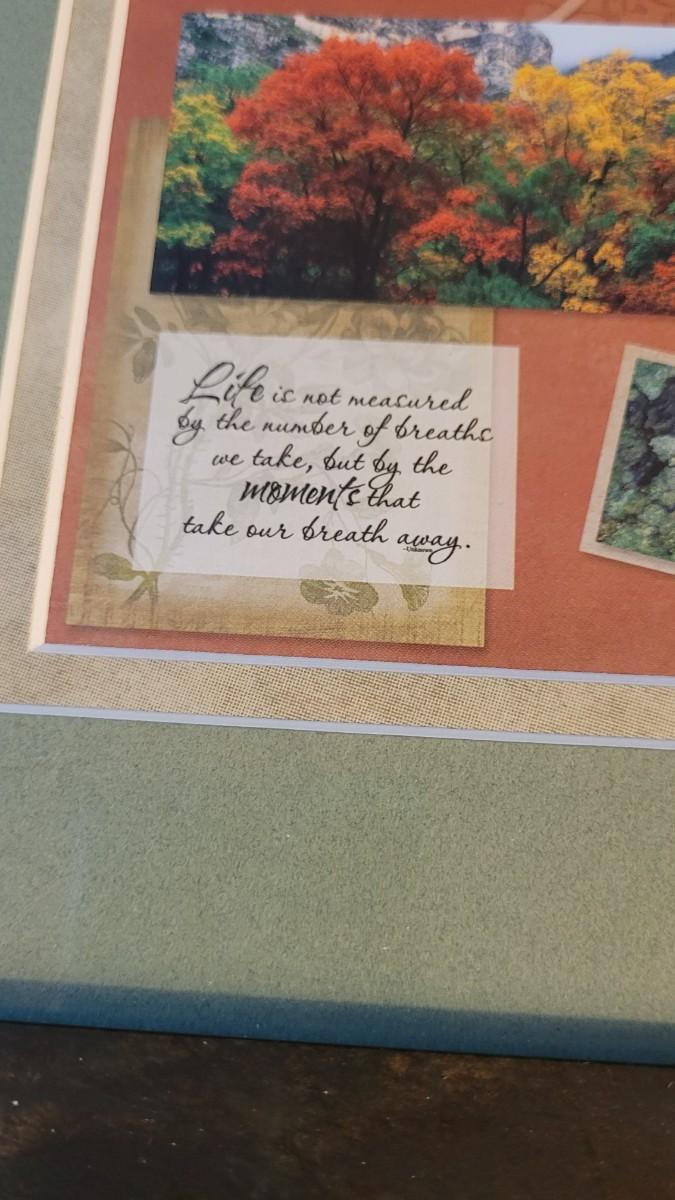 Life is not measured
by the number of breaths
we take, but by the
moments that
take our breath away.
-Unknown